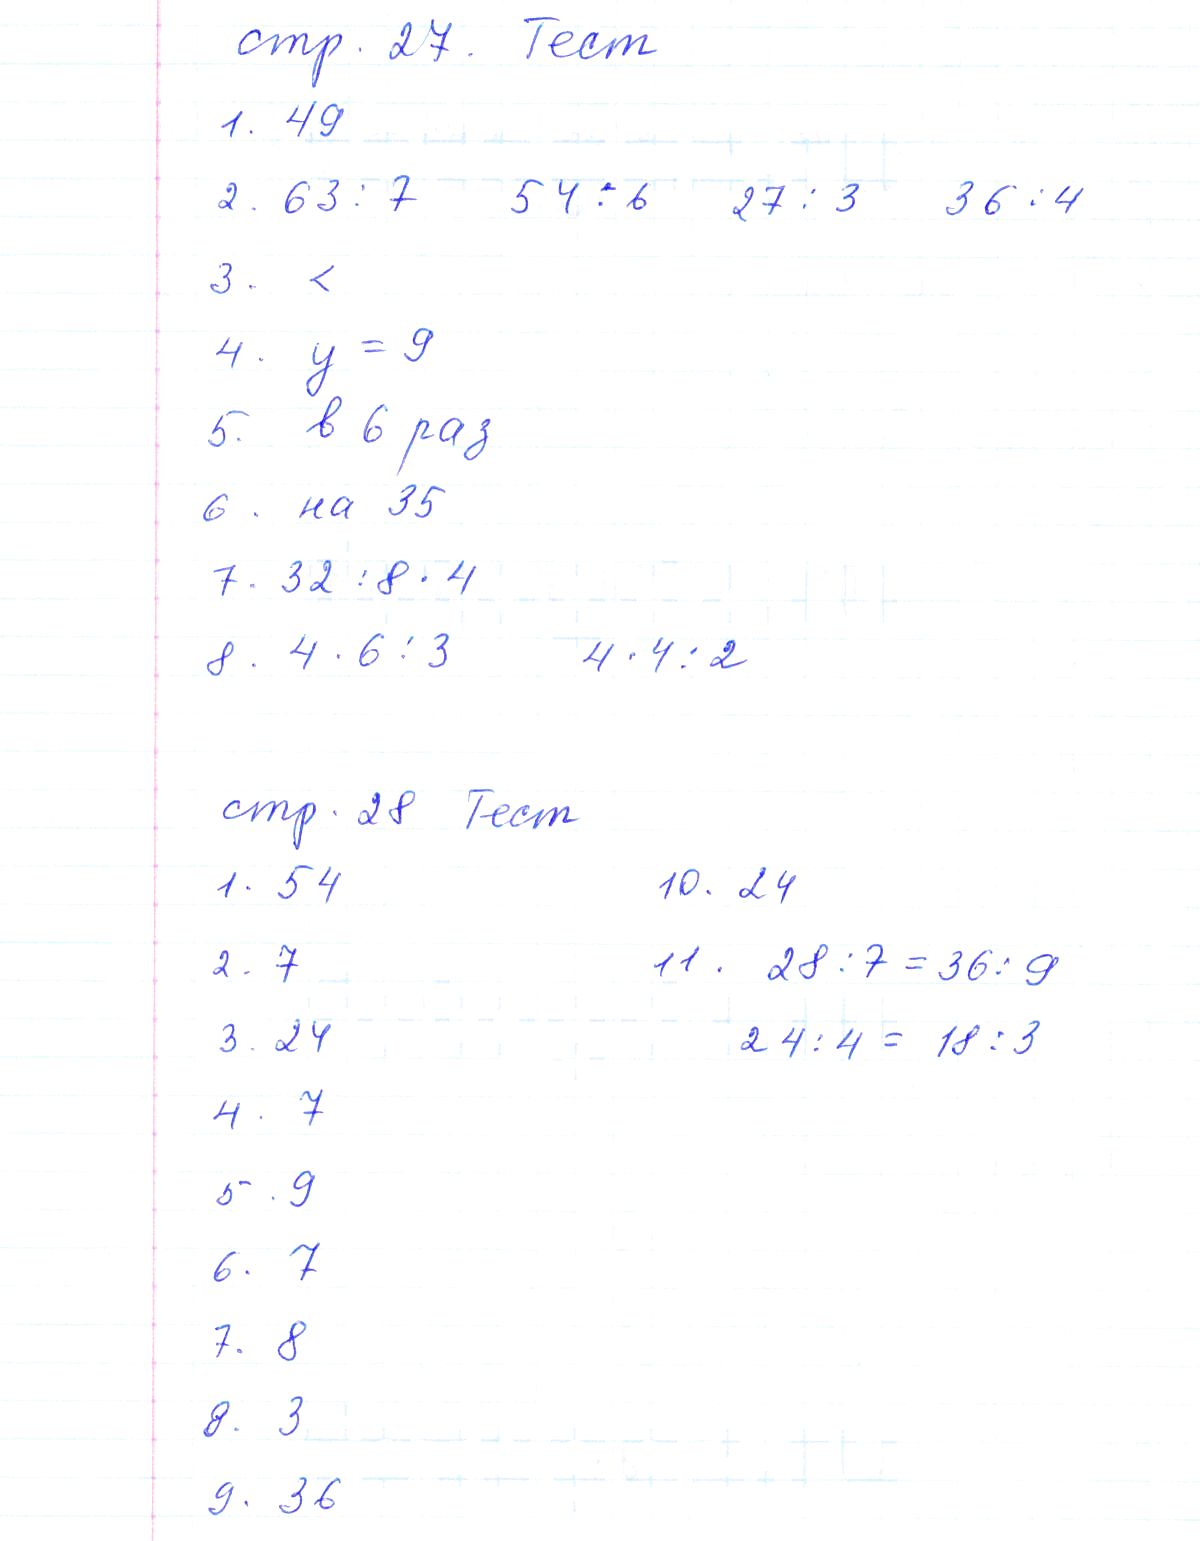 стр. 27. Тест
1. 49
2. 63 : 7 54 : 6 27 : 3 36 : 4
3. <
4. y = 9
5. в 6 раз
6. на 35
7. 32 : 8 · 4
8. 4 · 6 : 3 4 · 4 : 2
стр. 28 Тест
1. 54
2. 7
3. 24
4. 7
5. 9
6. 7
7. 8
8. 3
9. 36
10. 24
11. 28 : 7 = 36 : 9
24 : 4 = 18 : 3